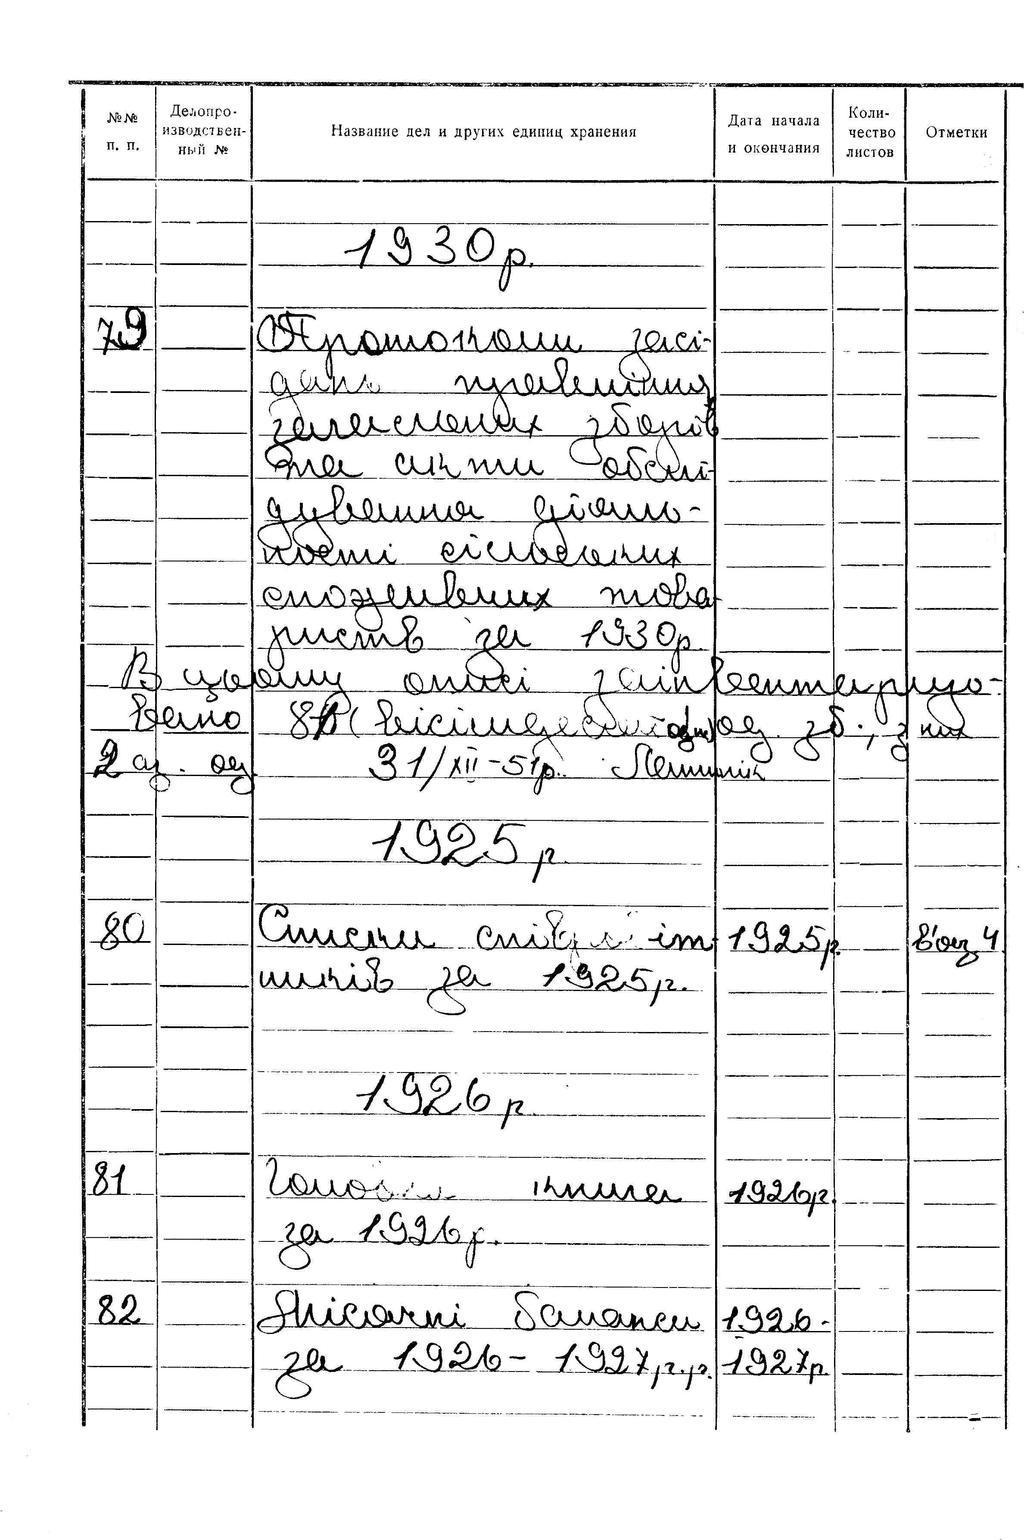 №№ п. п. Делопро-изводствен-ный № Название дел и других единиц хранения Дата начала и окончания Коли-чество листов Отметки
1930р.
79 Протоколи засі-
дань правління
загальних зборів
та акти обслі-
дування діяль-
ності сільських
споживчих това
риств за 1930р.
В цьому описі заінвентаризо-
вано 81 (вісімдесят од. зб., з них
2 од. 31/XII-51р.
1925р.
80 Списки співробіт 1925р.
ників за 1925р.
1926р.
81 Головна книга 1926р.
за 1926р.
82 Місячні баланси 1926-
за 1926-1927р.р. 1927р.